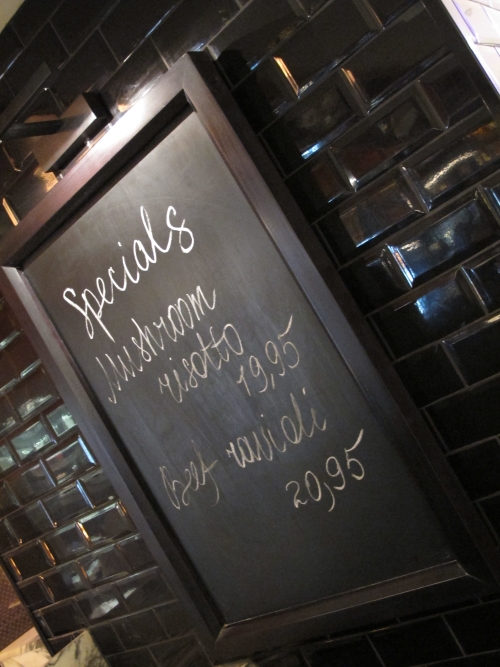 Specials
Mushroom
risotto
19,95
Beef ravioli
20,95